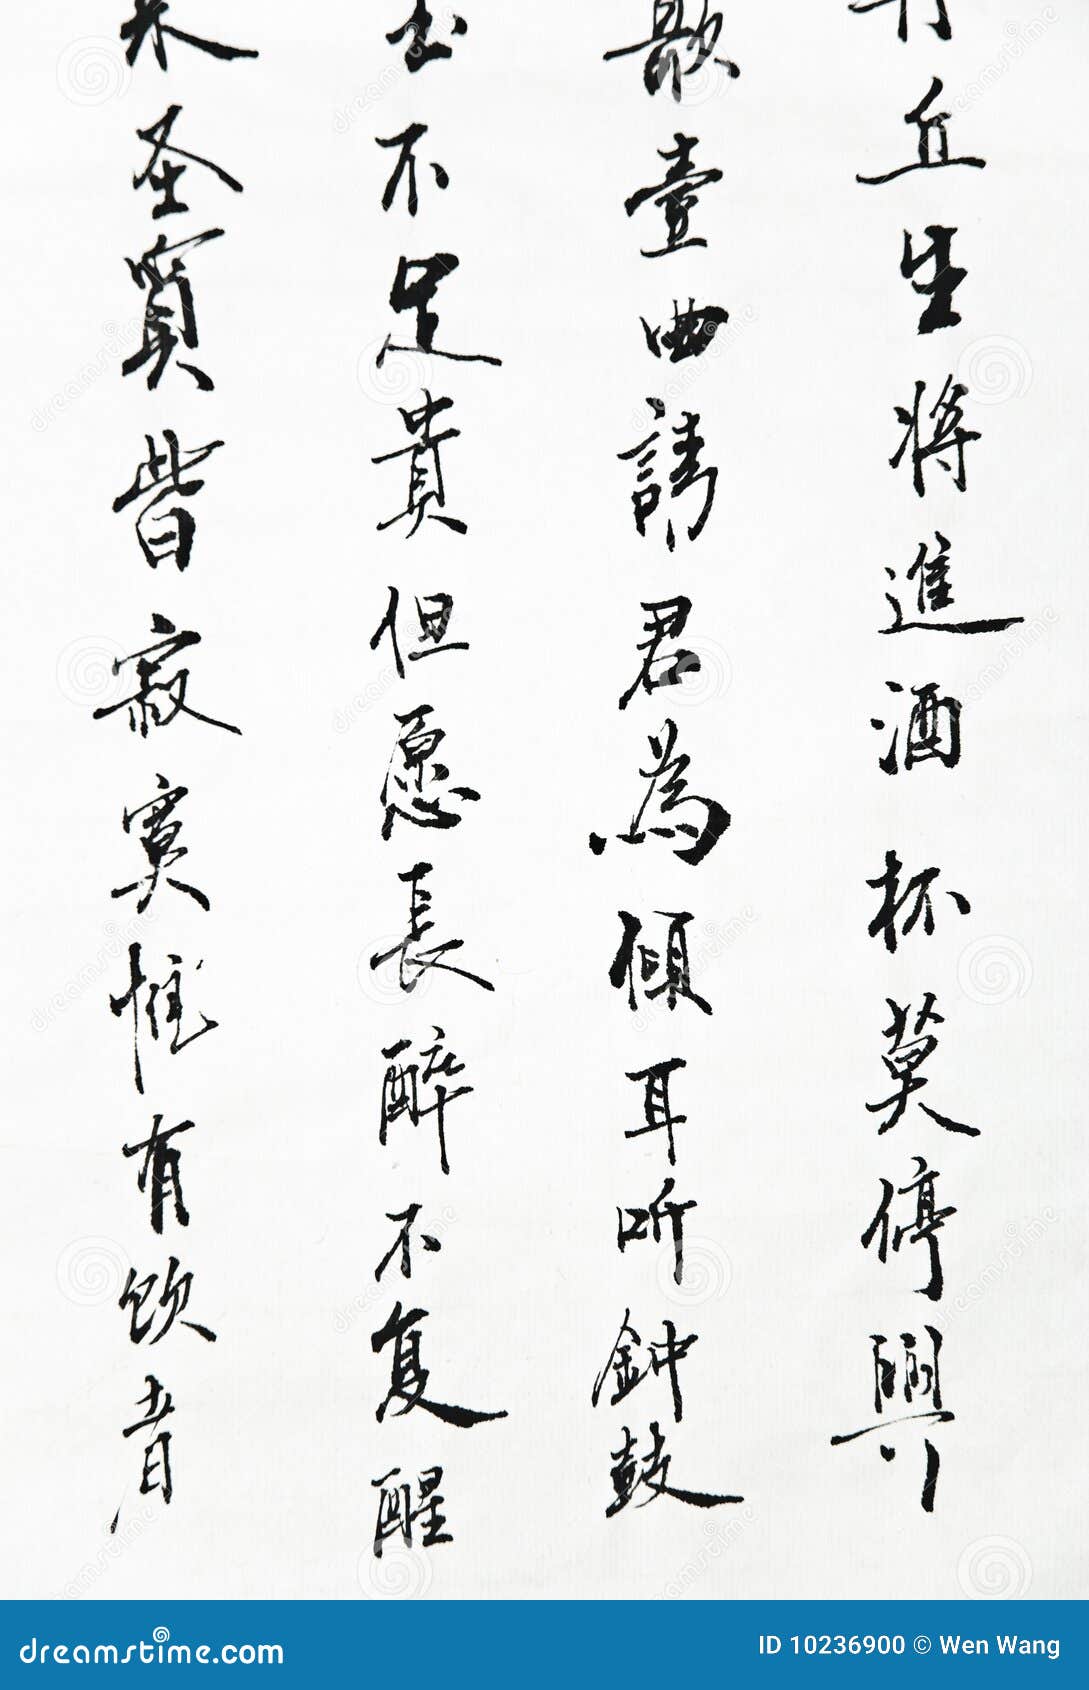 丘生將進酒杯莫停與
歌壹曲請君為傾耳听鈡鼓
玉不足貴但愿長醉不复醒
来圣賢皆寂寞惟有飲者
dreamstime.com
ID 10236900 © Wen Wang